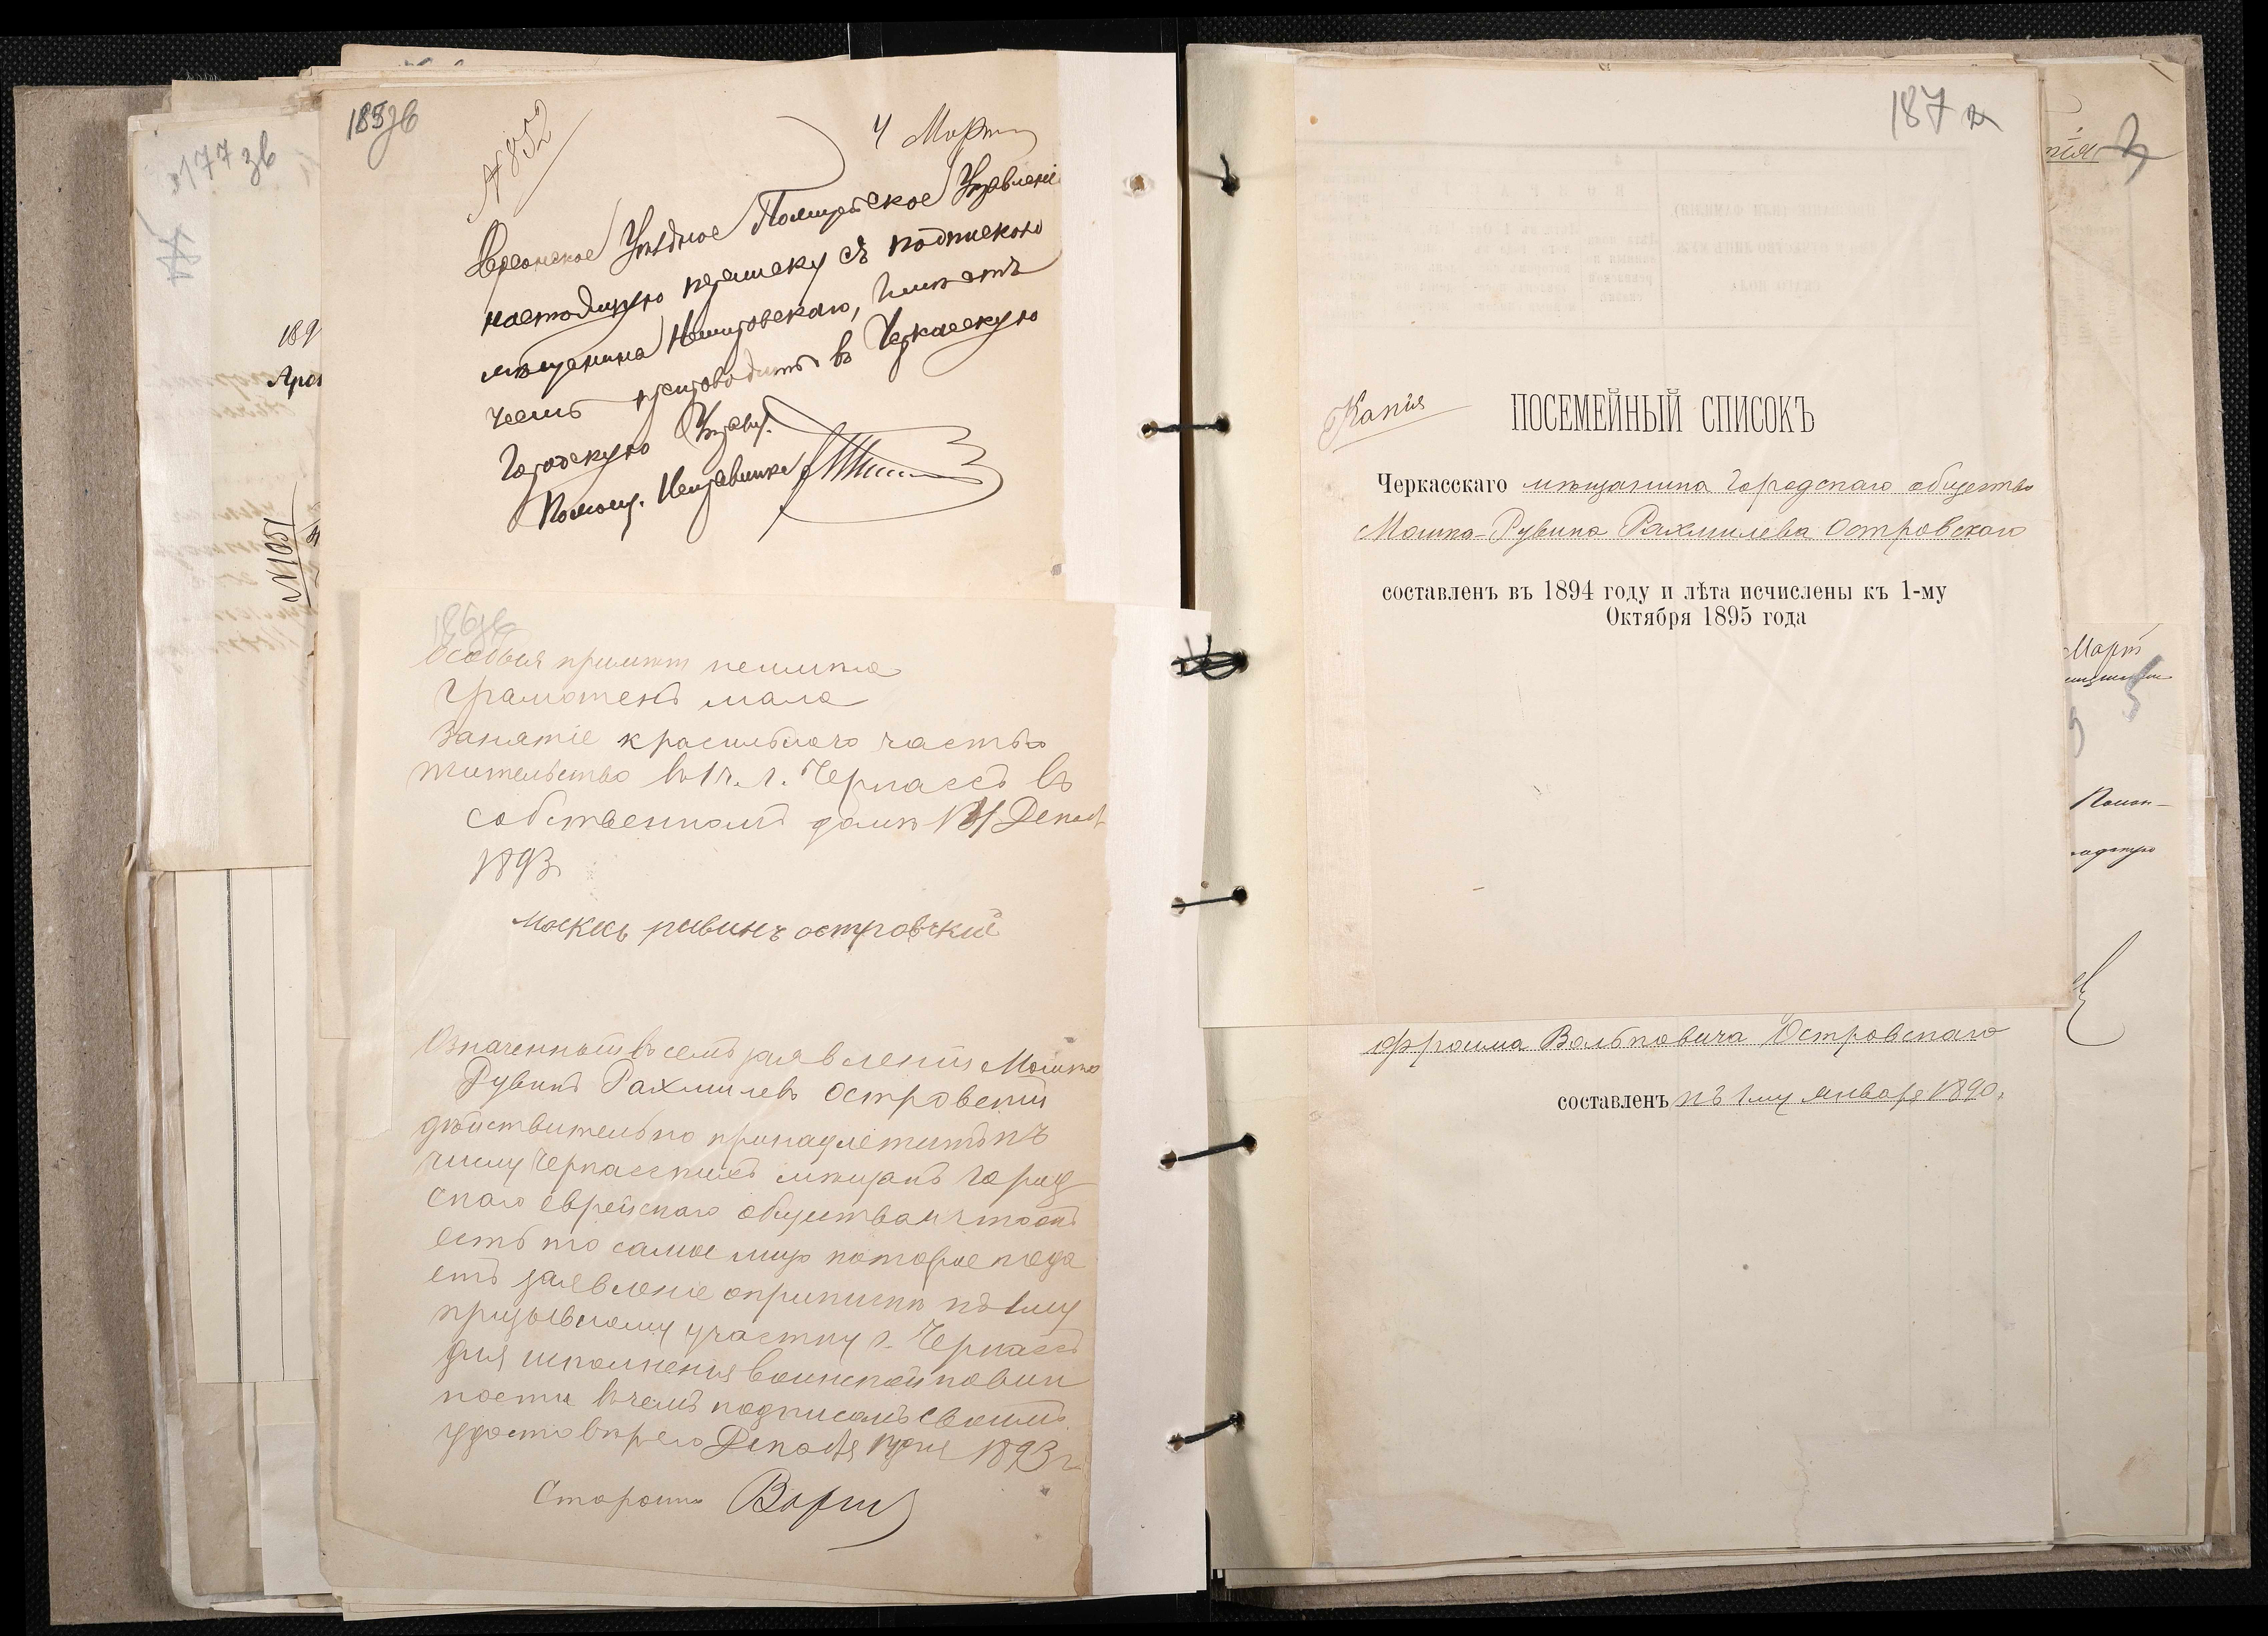 177 зв
189
№ 1051
185 зв
№ 852
4 Марта
Херсонское Уѣздное Полицейское Управленіе
настоящую переписку съ подпискою
мѣщанина Немировскаго, имѣетъ
честь препроводить въ Черкасскую
Городскую Управу.
Помощ. Исправника
186 зв
Особыя примѣты неимѣю
Грамотенъ мало
Занятіе красильного частью
жительство въ 1 ч. г. Черкассъ въ
собственномъ домѣ Декаб
1893
Москиь рувинъ островскій
Означенный въ семъ заявленіи Мошко
Рувинъ Рахмилевъ Островскій
дѣйствительно принадлежитъ къ
числу Черкасскихъ мѣщанъ город
скаго еврейскаго общества и что онъ
есть то самое лицо которое пода
етъ заявленіе о припискѣ къ 1му
призывному участку г. Черкассъ
для исполненія воинской повин
ности въ чемъ подписомъ своимъ
удостовѣряю Декабря дня 1893 г.
Староста
187
Копія
ПОСЕМЕЙНЫЙ СПИСОКЪ
Черкасскаго мѣщанина Городскаго общества
Мошка-Рувина Рахмилева Островскаго
составленъ въ 1894 году и лѣта исчислены къ 1-му
Октября 1895 года
Фроима Вольковича Островскаго
составленъ къ 1му января 1890.
Март